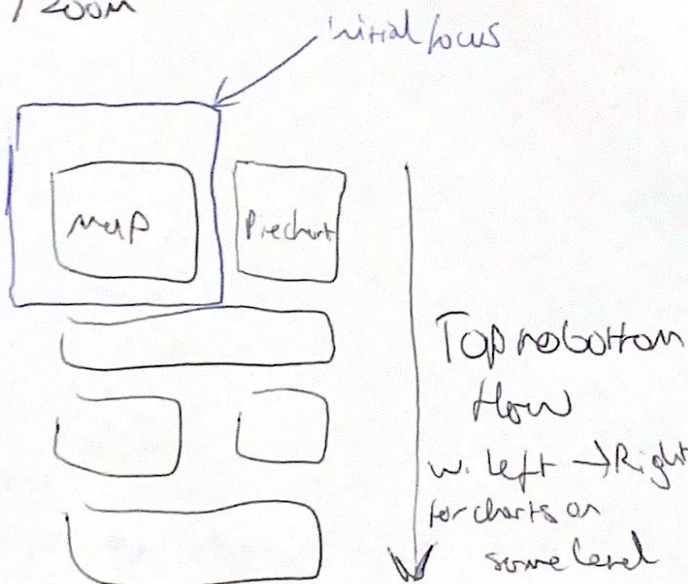 / zoom
initial focus
Map
Piechart
Top to bottom
flow
w. left → Right
for charts on
same level